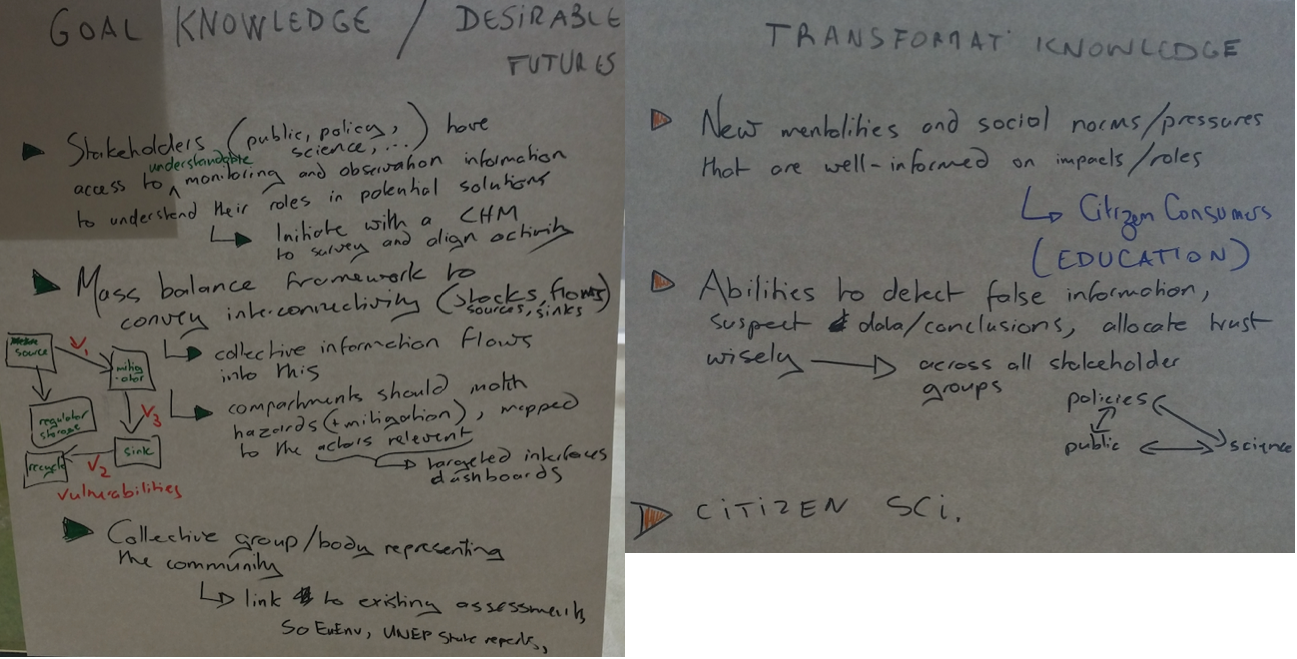 GOAL KNOWLEDGE / DESIRABLE
FUTURES
Stakeholders (public, policy,
science, ...) have
understandable
access to monitoring and observation information
to understand their roles in potential solutions
Initiate with a CHM
to survey and align activity
Mass balance framework to
convey interconnectivity (stocks, flows)
sources, sinks
collective information flows
into this
compartments should match
hazards (+ mitigation), mapped
to the actors relevent
targeted interfaces
dashboards
source
V1
mitig
-ator
V3
regulator
storage
sink
recycle
V2
vulnerabilities
Collective group/body representing
the community
link to existing assessments,
SoEuEnv, UNEP State reports,
TRANSFORMAT' KNOWLEDGE
New mentalities and social norms/pressures
that are well-informed on impacts/roles
Citizen Consumers
(EDUCATION)
Abilities to detect false information,
suspect data/conclusions, allocate trust
wisely
across all stakeholder
groups
policies
public
science
CITIZEN SCI.